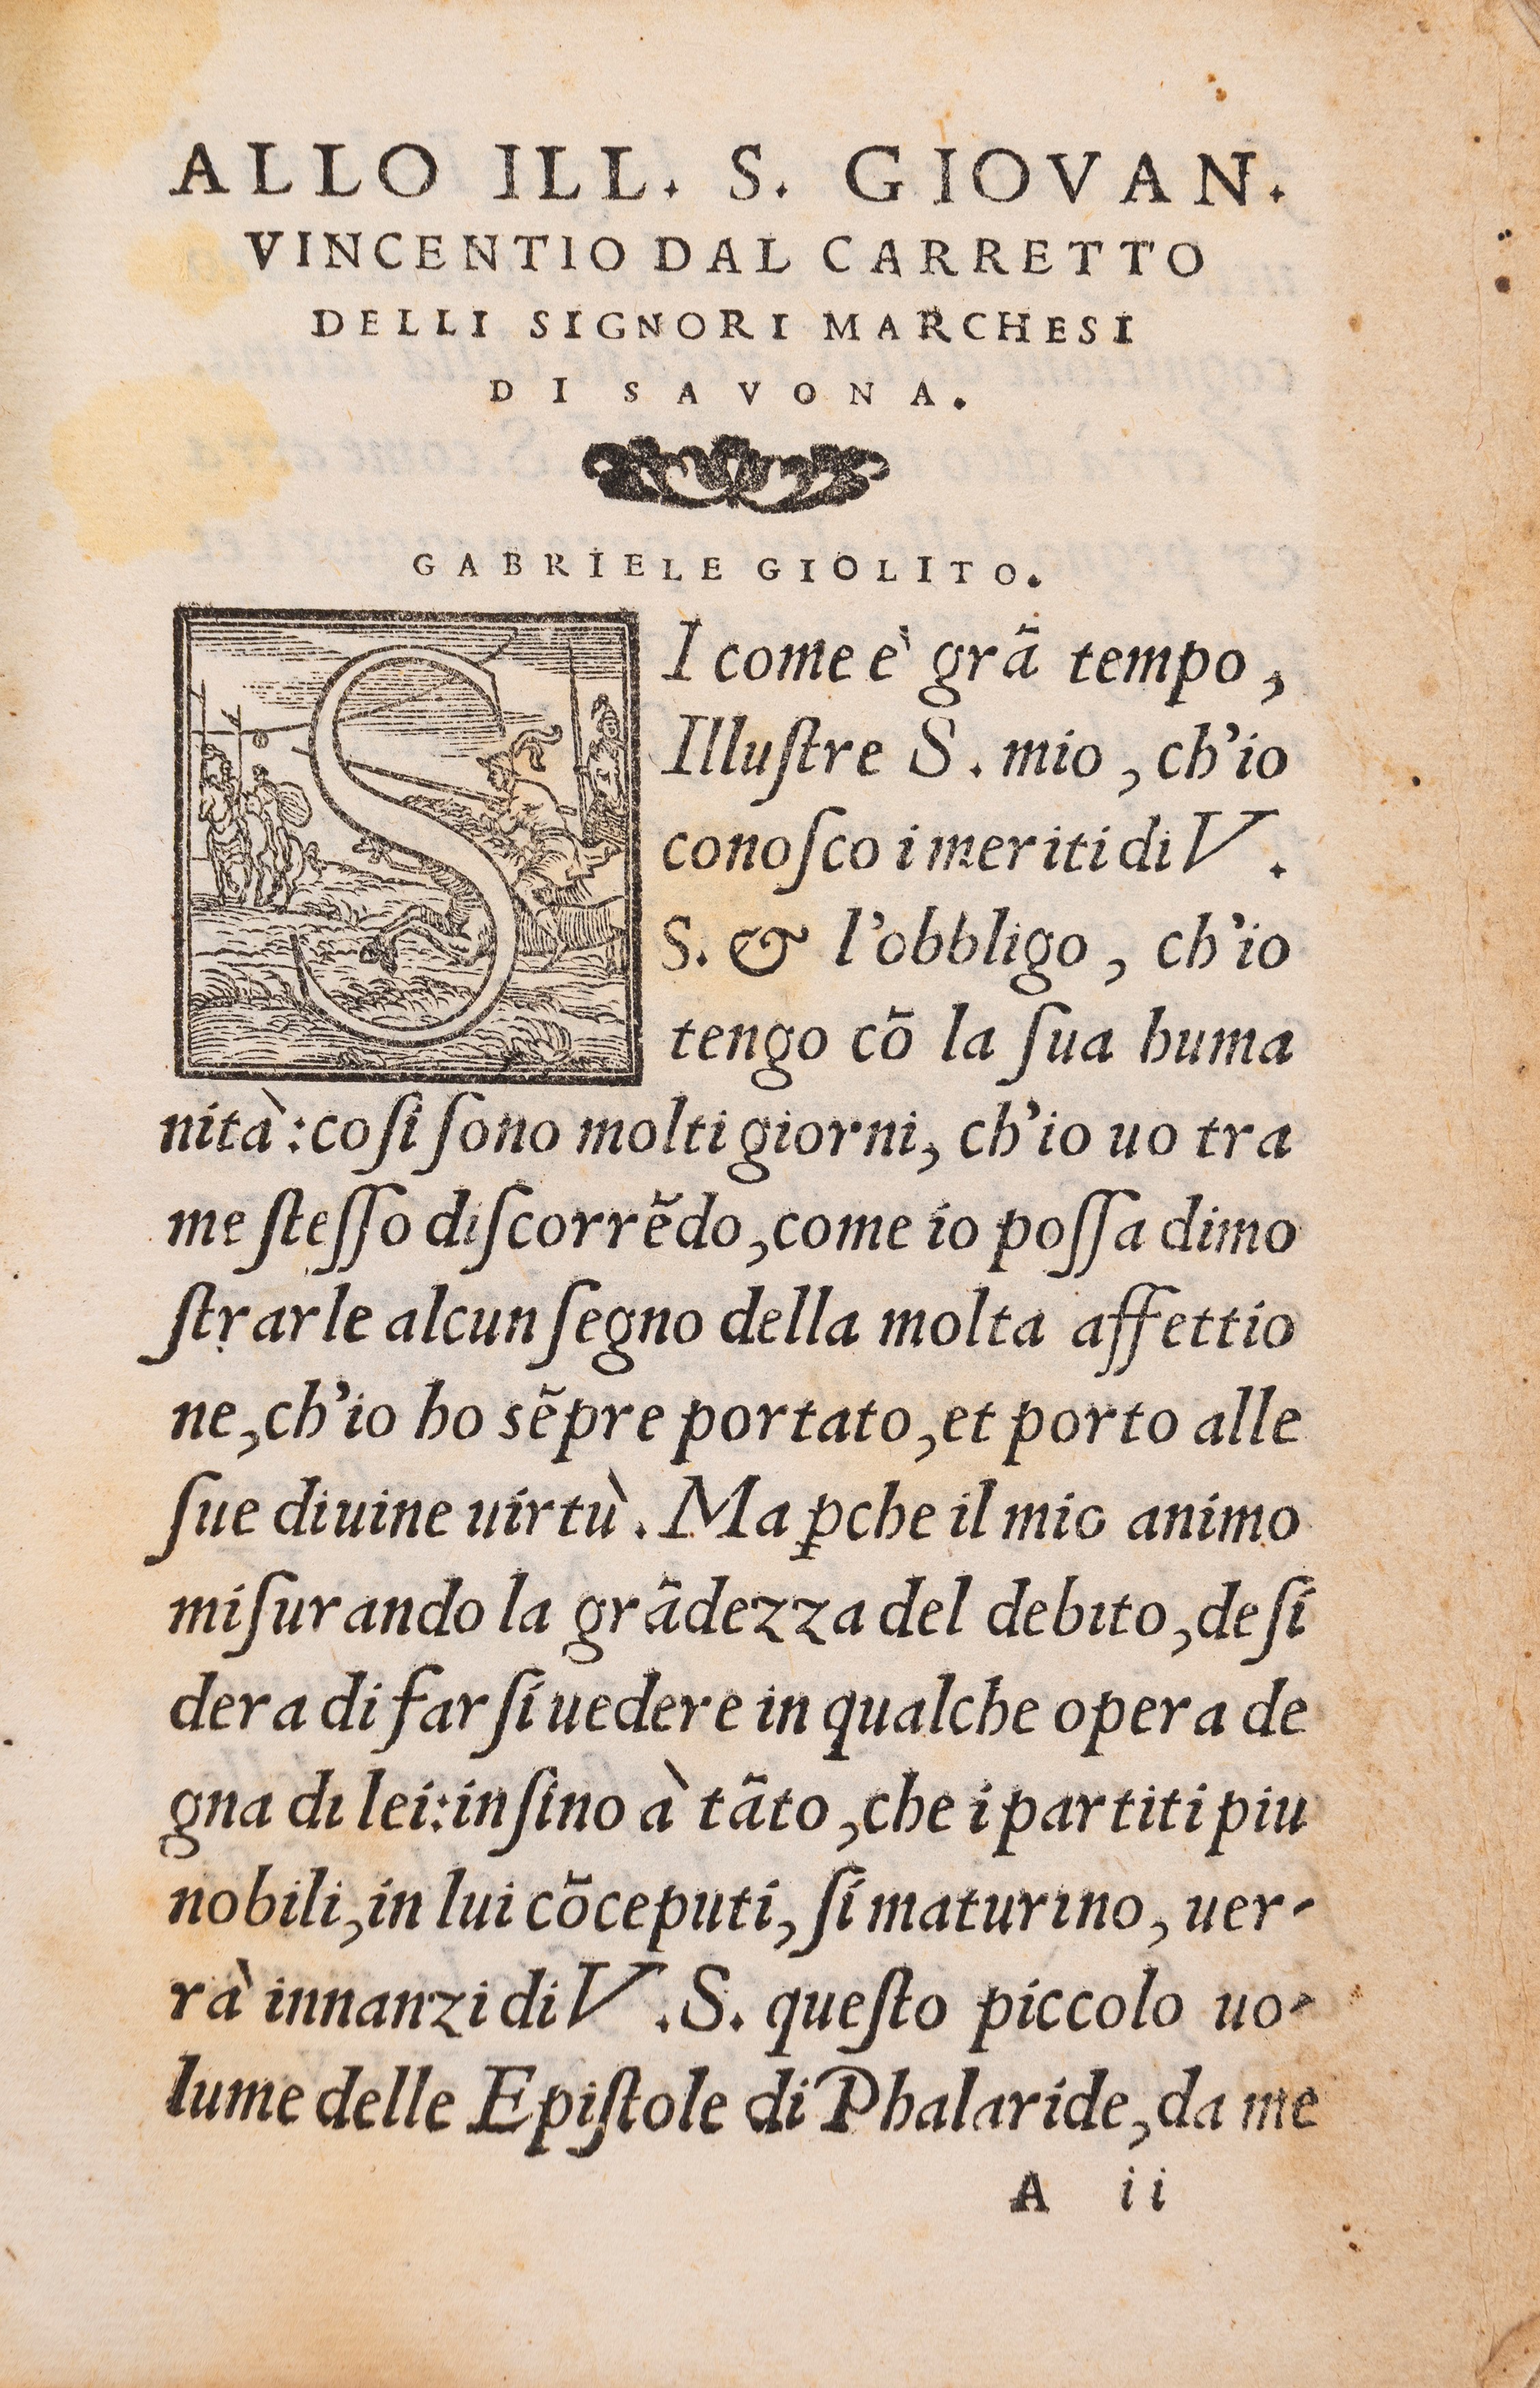 ALLO ILL. S. GIOVAN.
VINCENTIO DAL CARRETTO
DELLI SIGNORI MARCHESI
DI SAVONA.
GABRIELE GIOLITO.
SI come è grã tempo,
Illuſtre S. mio, ch'io
conoſco i meriti di V.
S. & l'obbligo, ch'io
tengo cõ la ſua huma
nità: coſi ſono molti giorni, ch'io uo tra
me ſteſſo diſcorrẽdo, come io poſſa dimo
ſtrarle alcun ſegno della molta affettio
ne, ch'io ho sẽpre portato, et porto alle
ſue diuine uirtù. Ma ꝑche il mio animo
miſurando la grãdezza del debito, deſi
dera di farſi uedere in qualche opera de
gna di lei: inſino à tãto, che i partiti piu
nobili, in lui cõceputi, ſi maturino, uer-
rà innanzi di V. S. queſto piccolo uo-
lume delle Epiſtole di Phalaride, da me
A ii